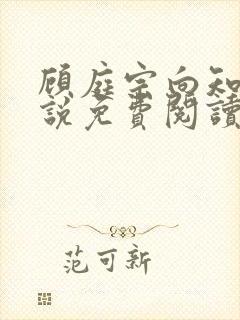 顾庭宗向知
說免費閱讀
范可新